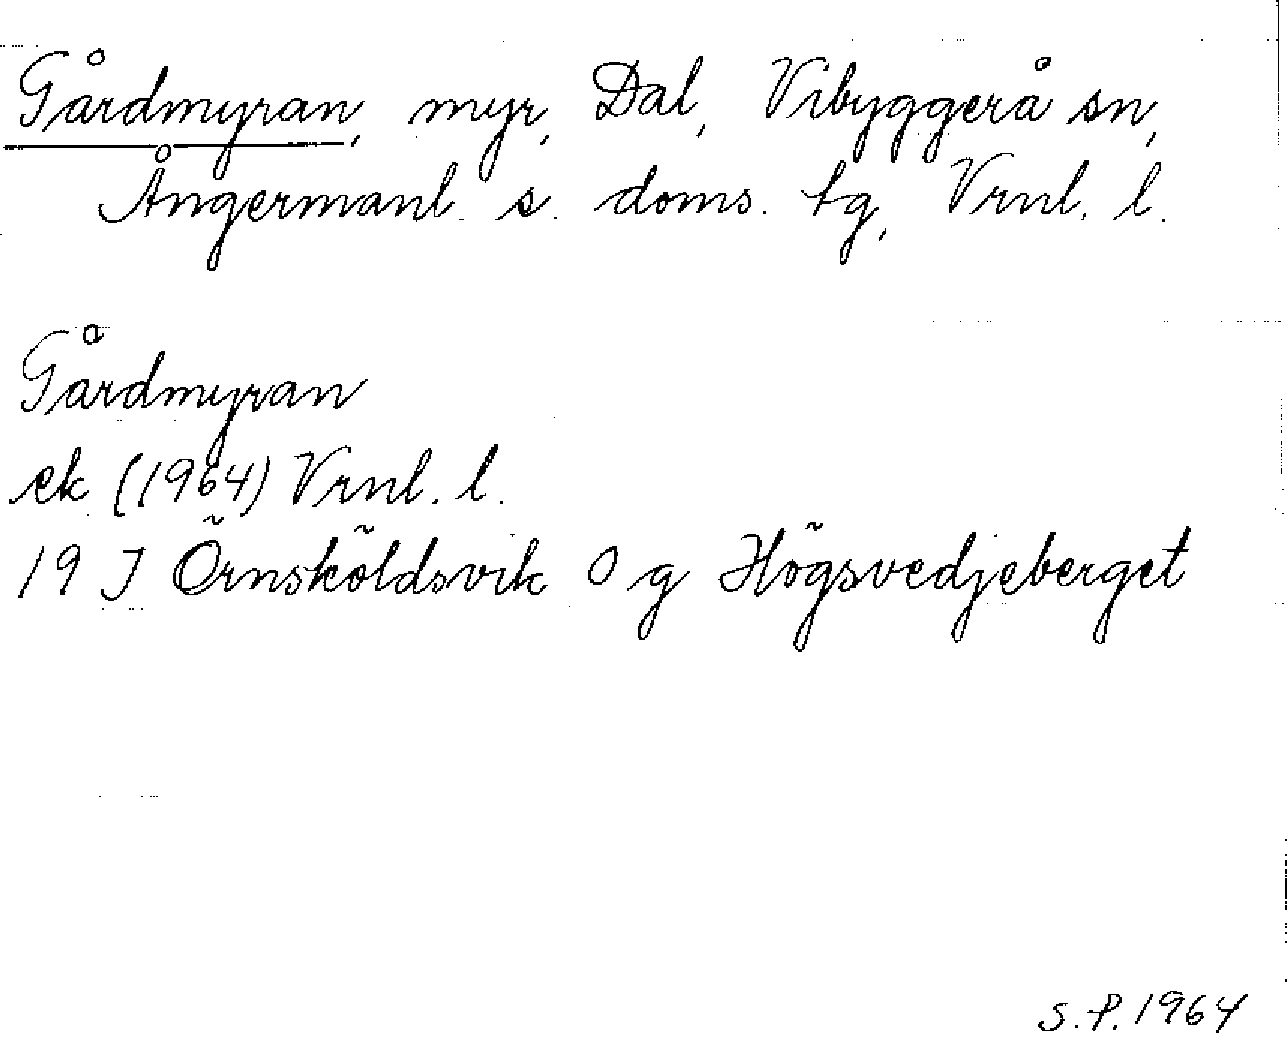 Gårdmyran, myr, Dal, Vibyggerå sn,
Ångermanl. s. doms. tg, Vrnl. l.
Gårdmyran
ek (1964) Vrnl. l.
19 J Örnsköldsvik O g Högsvedjeberget
S.P. 1964